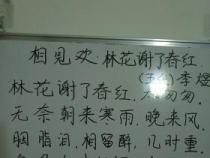 相见欢·林花谢了春红
(五代)李煜
林花谢了春红,太匆匆,
无奈朝来寒雨,晚来风,
胭脂泪,相留醉,几时重,